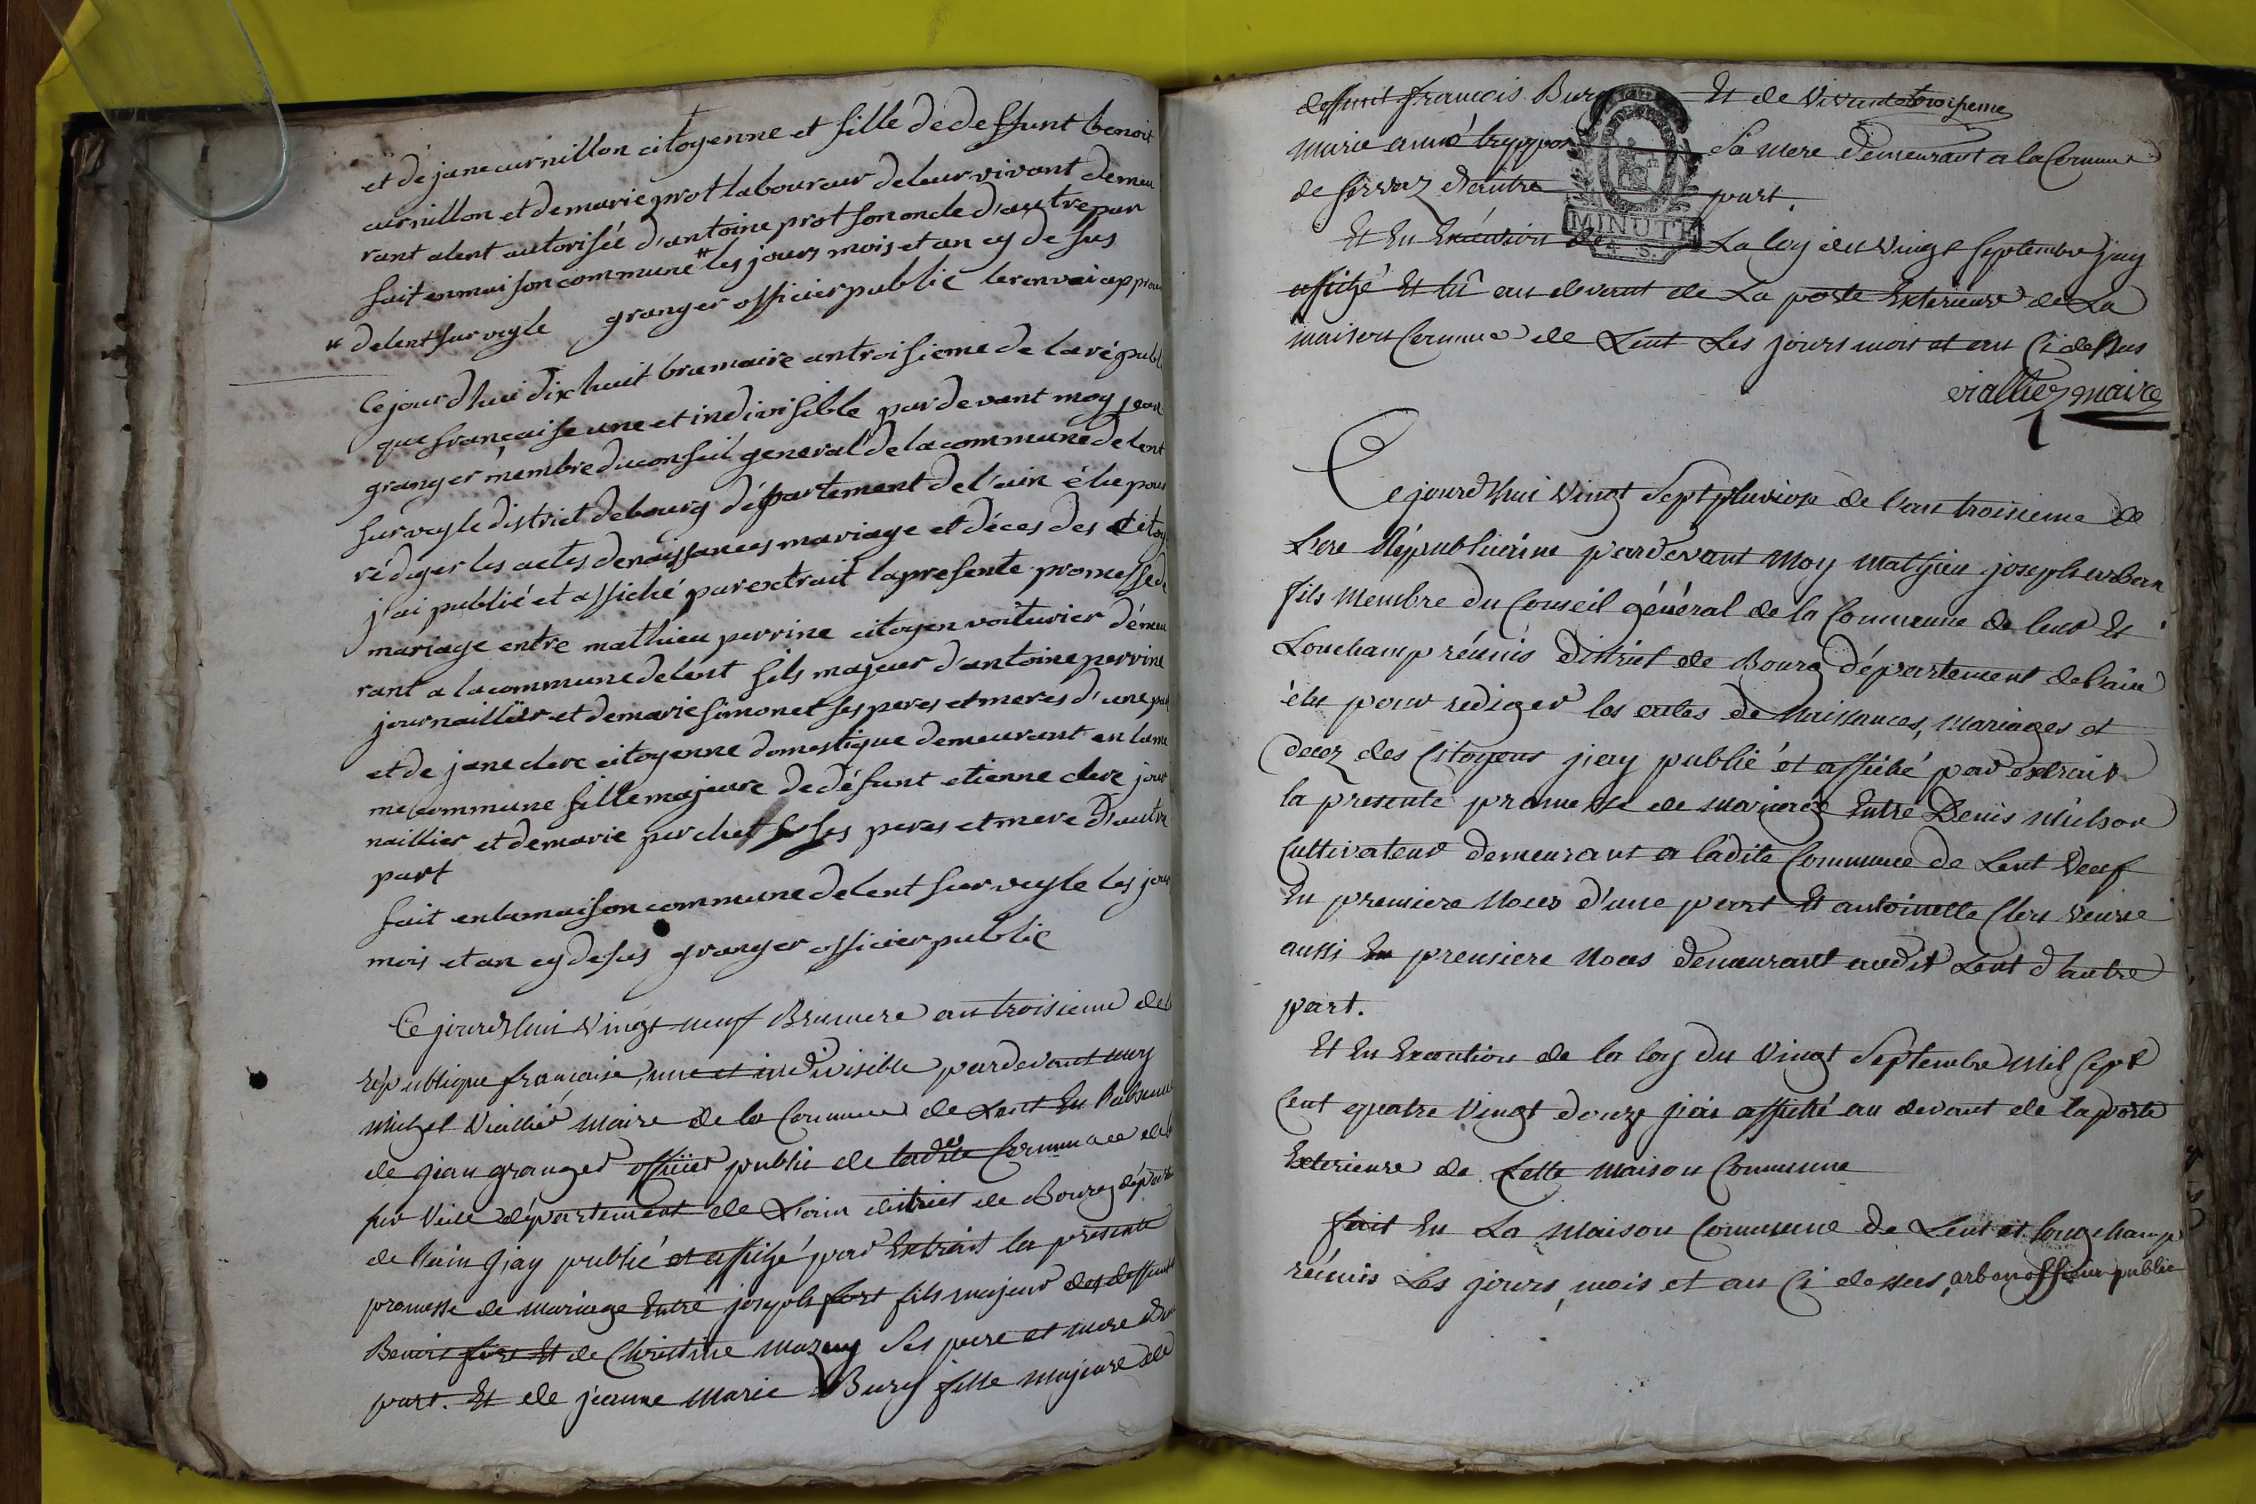 et de jane curnillon citoyenne et fille de deffunt benoit
curnillon et de marie prot laboureur de leur vivant demeu
rant a lent autorisée d'antoine prot son oncle d'autre par
fait en maison commune # les jours mois et an cy desus
# de lent sur vegle granger officier public le renvoi approu
Ce jourd'hui dix huit brumaire an troisieme de la répubi
que française une et indivisible pardevant moy jean
granger membre du conseil general de la commune de lent
sur vegle district de bourg département de l'ain élu pour
rédiger les actes de naissances mariage et déces des citoy
j'ai publié et affiché par extrait la presente promesse de
mariage entre mathieu perrine citoyen voiturier démeu
rant a la commune de lent fils majeur d'antoine perrine
journaillier et de marie simonet ses peres et meres d'une par
et de jane clerc citoyenne domestique demeurant en la me
me commune fille majeure de défunt etienne clerc jour
naillier et de marie perchet ses peres et mere d'autre
part
fait en la maison commune de lent sur veyle les jour
mois et an cy desus granger officier public
Ce jourd'hui vingt neuf Brumere an troisieme de la
république française, une et indivisible pardevant moy
Michel Viallier Maire de la Commune de Lent En l'absence
de jean granger officier public de ladite Commune de
sur Veile département de L'ain district de Bourg départ
de l'ain j'ay publié et affiché par Extrait la presente
promesse de mariage Entre joseph fort fils majeur des deffunts
Benoit fort Et de Christine Mazuy Ses pere et mere d'une
part. Et de jeanne Marie Burg fille majeure de
deffunt francois Burg Et de Vivante troisieme
Marie anne Sa Mere demeurant a la Commune
de Servaz d'autre part.
Et En Exécution de La loy du Vingt Septembre j'ay
affiché Et lû au devant de La porte Exterieure de La
maison Commune de Lent Les jours mois et an Ci dessus
viallier maire
MINUTE
Ce jourd'hui Vingt Sept pluviose de l'an troisieme de
L'ere Républicaine pardevant Moy Mathieu joseph arban
fils Membre du Conseil général de la Commune de lent Et
Lonchamp réunis District de Bourg département de l'ain
élu pour rediger les actes de Naissances, Mariages et
decez des Citoyens j'ay publié et affiché par extrait
la presente promesse de mariage Entre Denis Michon
Cultivateur demeurant a ladite Commune de Lent Veuf
En premiere Noces d'une part Et antoinette Clerc veuve
aussi En premiere Noces demeurant audit Lent d'autre
part.
Et En Execution de la loy du Vingt Septembre Mil Sept
Cent quatre Vingt douze j'ai affiché au devant de la porte
Exterieure de Cette Maison Commune
fait En La Maison Commune de Lent et longchamp
réunis Les jours, mois et an Ci dessus, arban officier public